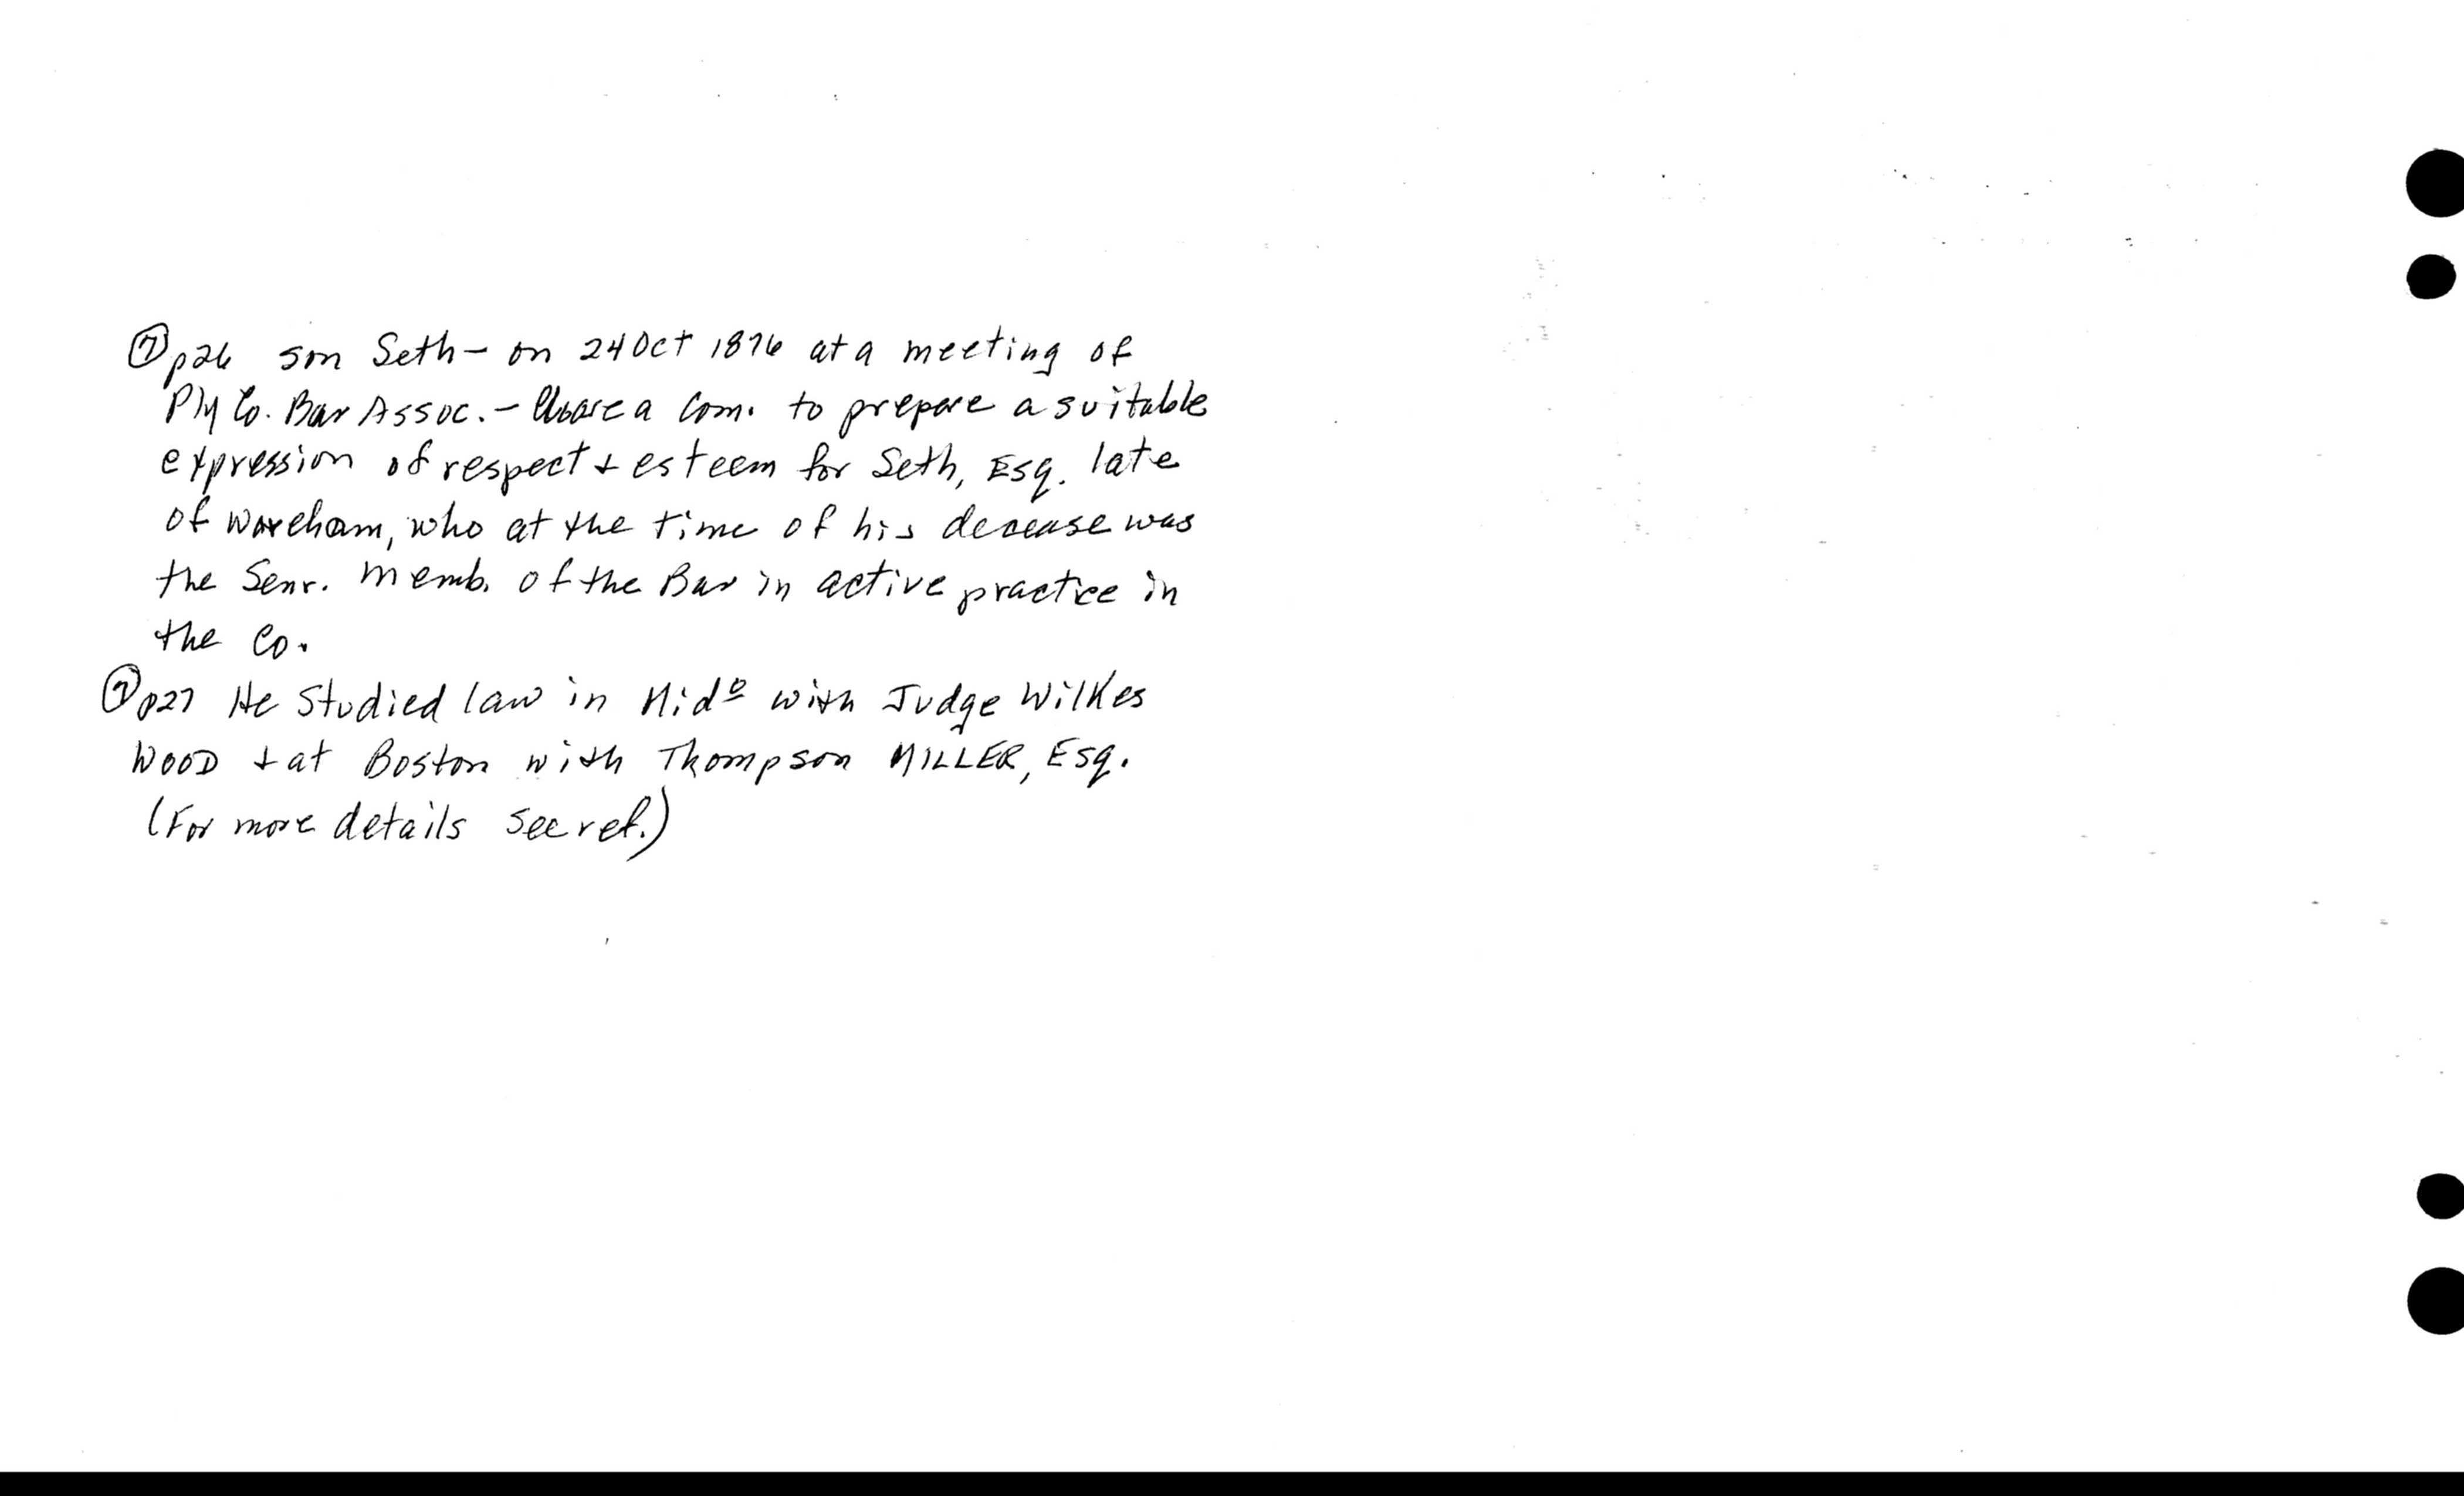 ⑦ p26 son Seth - on 24 Oct 1876 at a meeting of
Ply Co. Bar Assoc. - Chose a Com. to prepare a suitable
expression of respect & esteem for Seth, Esq. late
of Wareham, who at the time of his decease was
the Senr. Memb. of the Bar in active practice in
the Co.
⑦ p27 He Studied law in Mido with Judge Wilkes
WOOD & at Boston with Thompson MILLER, Esq.
(For more details see ref.)